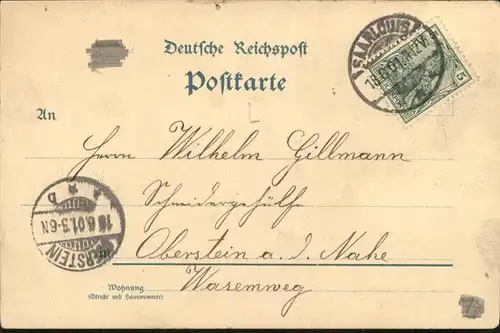 SAARLOUIS
5
Deutsche Reichspost
Postkarte
An
Herrn Wilhelm Gillmann
Schneidergehülfe
OBERSTEIN
18.6.01.3-6N
* b
in Oberstein a. d. Nahe
Wasemweg
Wohnung
(Straße und Hausnummer)